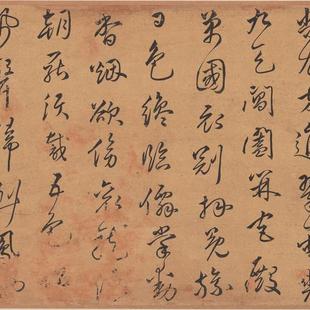 尚衣方進翠雲裘
九天閶闔開宮殿
萬國衣冠拜冕旒
日色纔臨僊掌動
香烟欲傍袞龍浮
朝罷須裁五色
珮聲歸到鳳池